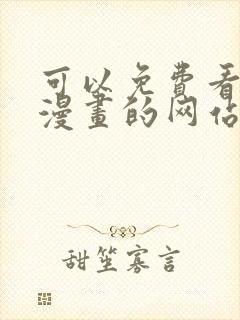 可以免费看
漫畫的网站
甜笙寡言